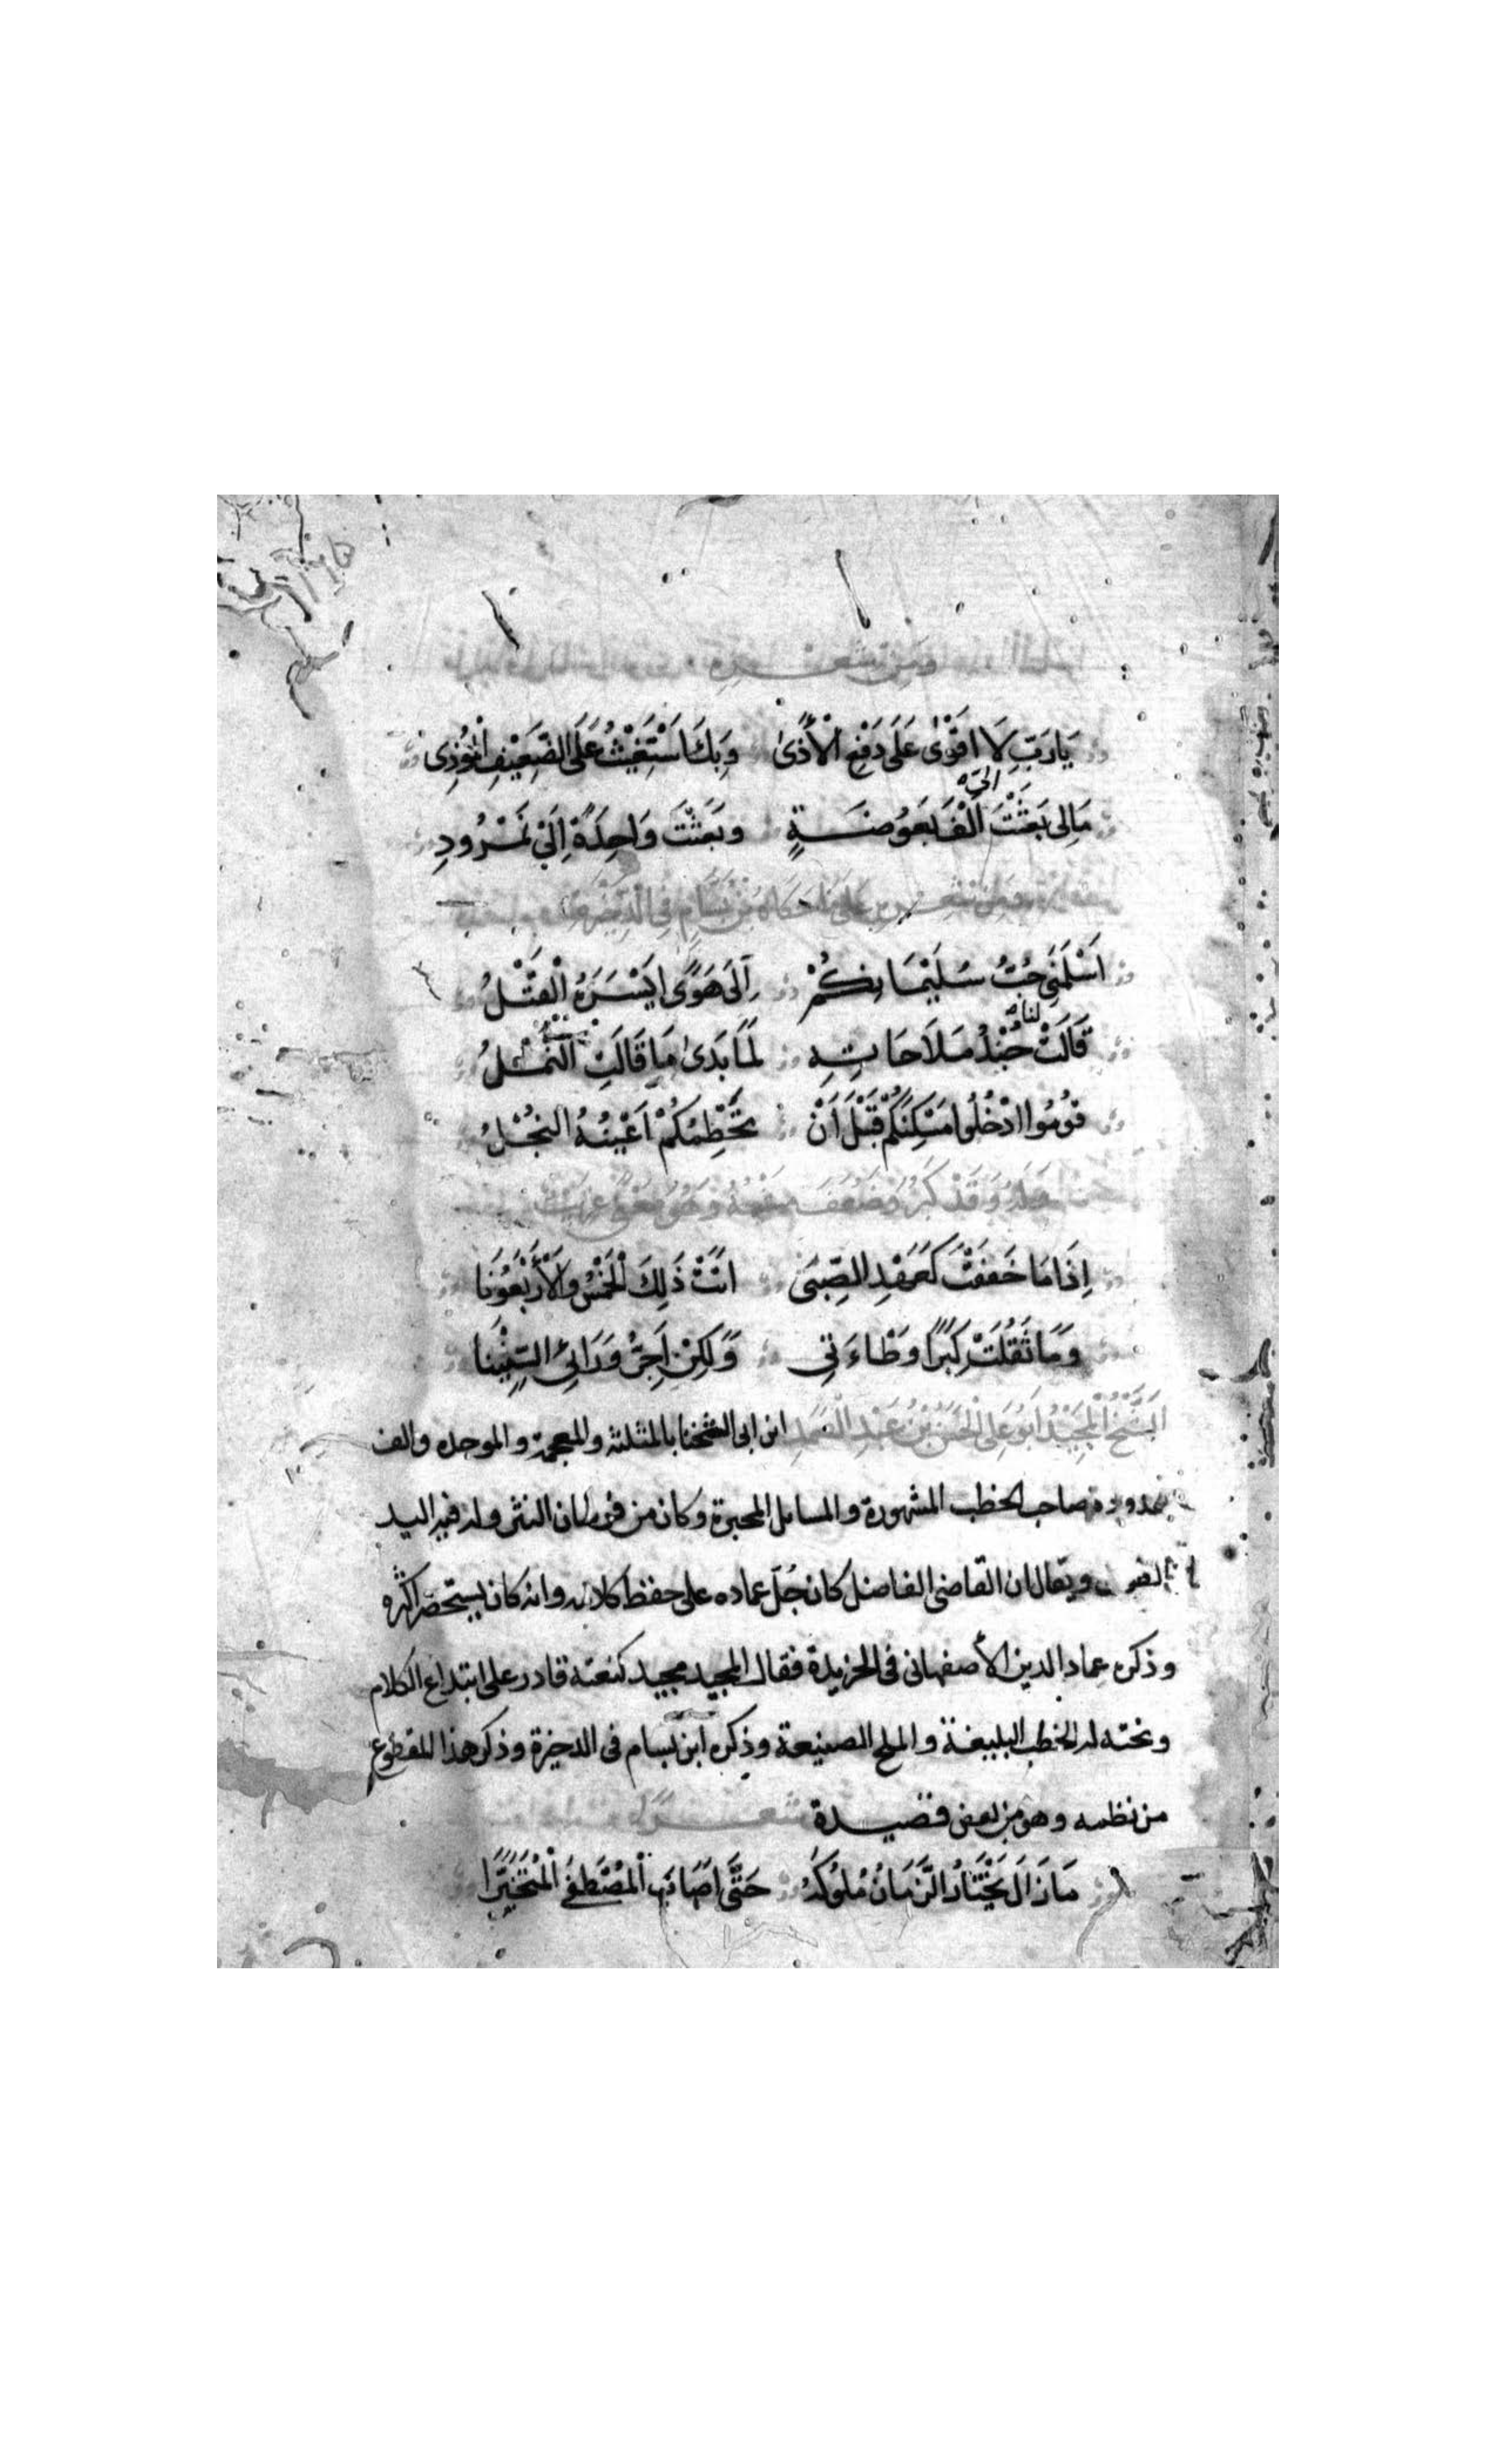 ومن شعره
يَارَبِّ لَا اقْوٰى عَلَى دَفْعِ الْأَذىٰ وَبِكَ اسْتَغِيْثُ عَلَى الضَّعِيْفِ الْمُؤْذِى
مَالِى بَعَثْتَ الىّ اَلْفَ بَعُوضَةٍ وبَعَثْتَ وَاحِدَةً اِلَىْ نَمْرُودِ
ومن شعره على مَا حَكَاهُ بْنُ بَسَّامٍ فِى الذَّخِيْرَةِ
اَسْلَمَنِى حُبُّ سُلَيْمَانِكُمْ اِلَى هَوًى ايَْسَرُهُ الْقَتْلُ
قَالَتْ لنا جُنْدُ مَلَاحَاتِهِ لَمَّا بَدَىٰ مَا قَالَتِ النَمْلُ
قُومُوا ادْخُلُوا مَسْكِنَكُمْ قَبْلَ أَنْ تَحْطِمُكُمْ اَعْيُنُهُ النُجُلُ
وَلَهُ وَقَدْ كَبُرَ وَضَعُفَ
اِذَا مَا خَفَفْتَ كَعَهْدِ الصِّبَىٰ اتَتْ ذَلِكَ الْخَمْسُ وَالْأَرْبَعُونَا
وَمَا ثَقُلَتْ كِبَرًا وَطْاءَتِى وَلَكِنْ اَجُرُّ وَرَائِىْ السِّنِيْنَا
اَلشَّيْخُ الْمُجِيْدُ اَبُو عَلِى الْحَسَنُ بْنُ عَبْدِ الصَّمَدِ ابن ابى الشخنا بالمثلثة والمعجمة والموحده والف
ممدودة صاحب الخطب المشهورة والمسايل المحبرة وكان من فرسان النثر وله فيه اليد
ويقال ان القاضى الفاضل كان جُلّ عماده على حفظ كلامه وانه كان يستحضر اكثره
وذكره عماد الدين الأصفهانى فى الخريدة فقال المجيد مجيد كنعته قادر على ابتداع الكلام
ونحته له الخطب البليغة والملح الصنيعة وذكره ابن بسام فى الذخيرة وذكر هذا المقطوع
من نظمه وهو من بعض قصيدة شعر
مَا زَالَ يَخْتَارُ الزَّمَانُ مُلُوكَهُ حَتَّى اَصَابَ الْمُصْطَفَى الْمُتَخَيَّرَا